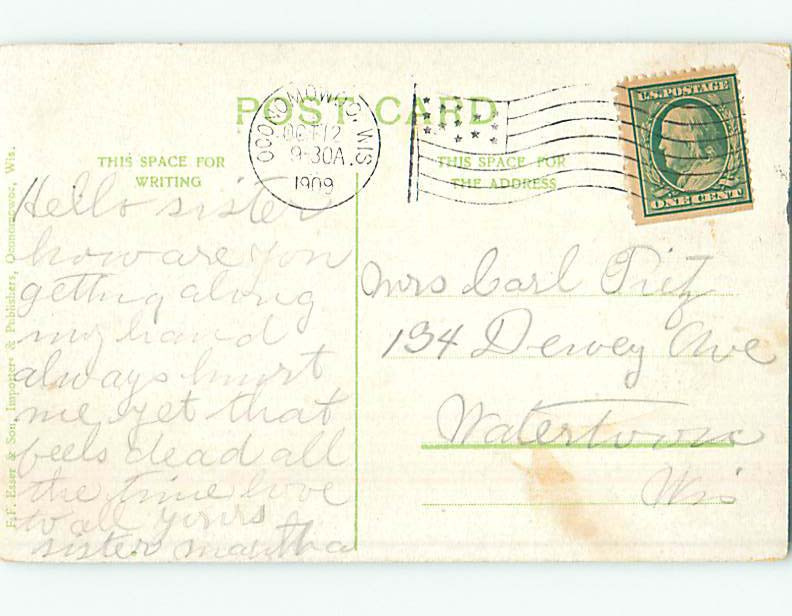 POST CARD
OCONOMOWOC, WIS
OCT 12
9-30A.
1909
U.S. POSTAGE
ONE CENT
THIS SPACE FOR
WRITING
THIS SPACE FOR
THE ADDRESS
Hello sister
how are you
getting along
my hand
always hurt
me, yet that
feels dead all
the time love
to all yours
sister martha
Mrs Carl Tietz
134 Dewey Ave
Watertown
Wis
F. F. Esser & Son, Importers & Publishers, Oconomowoc, Wis.